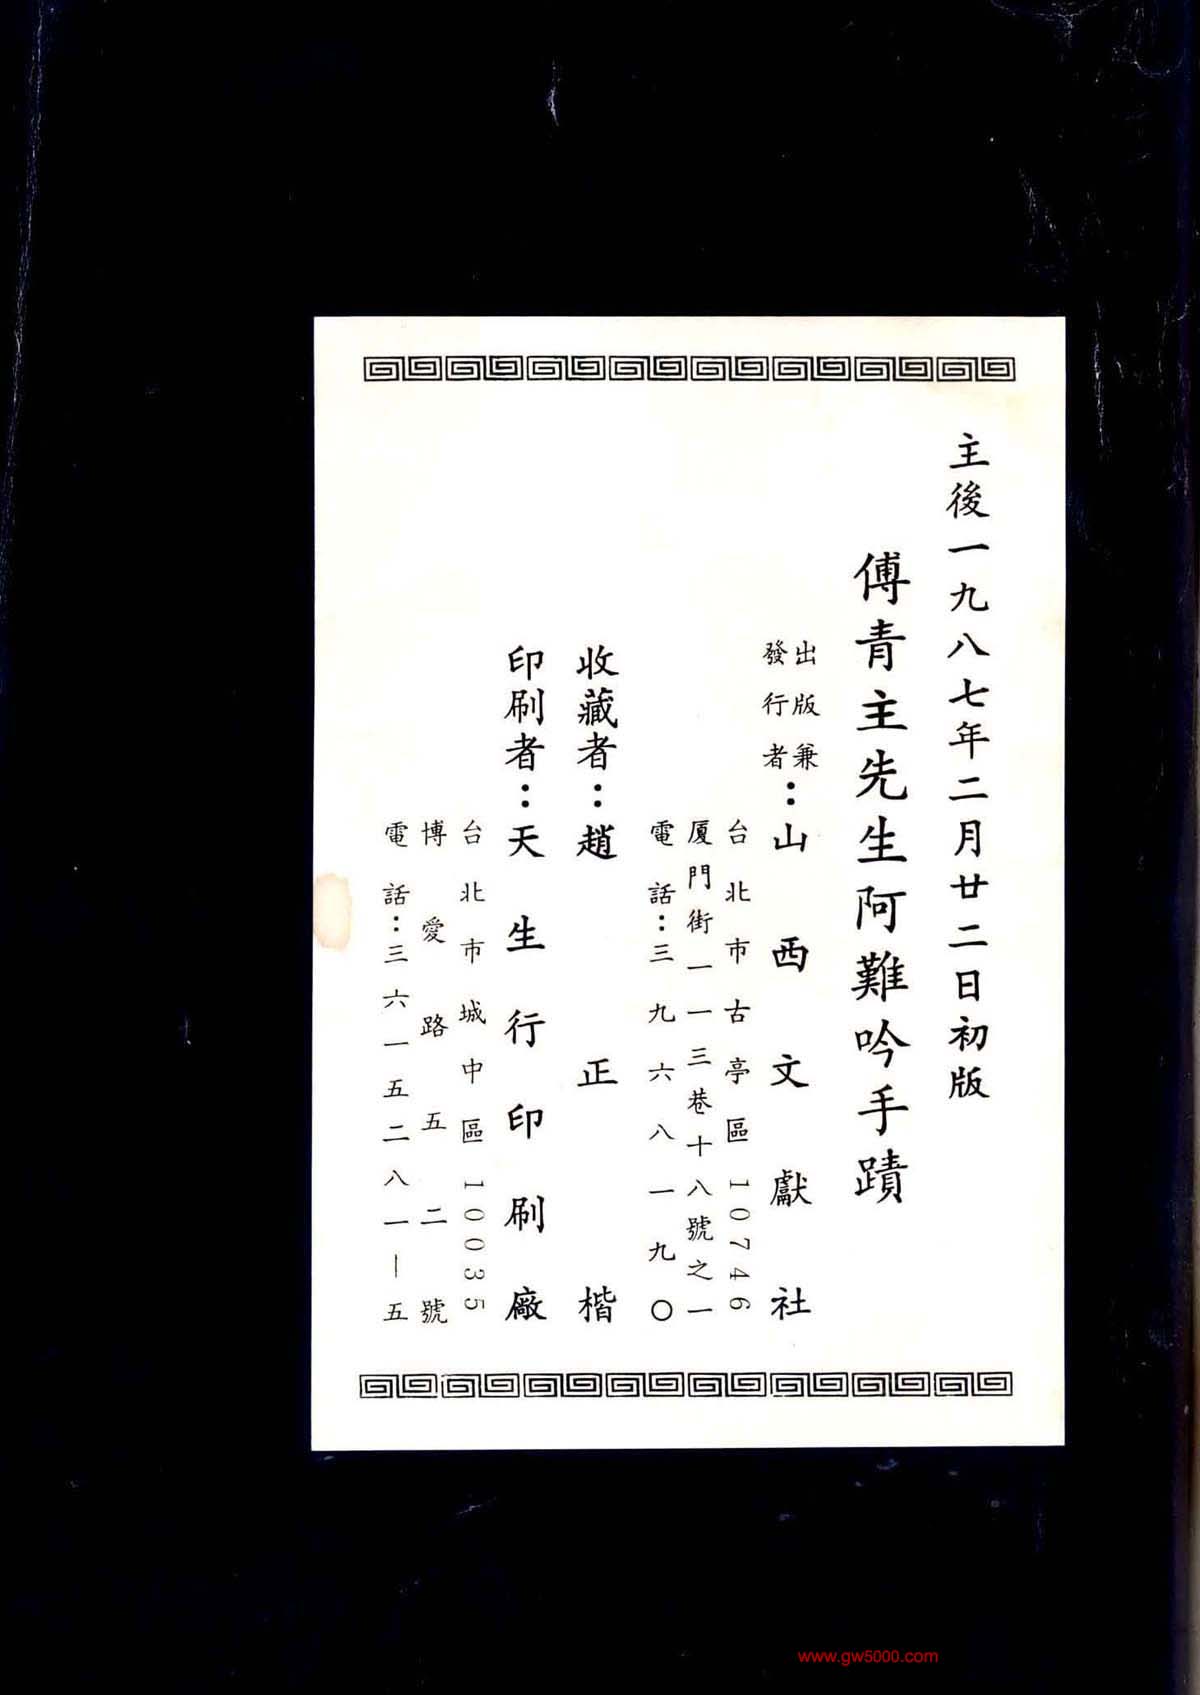 主後一九八七年二月廿二日初版
傅青主先生阿難吟手蹟
出版兼
發行者：山西文獻社
台北市古亭區10746
厦門街一一三巷十八號之一
電話：三九六八一九〇
收藏者：趙正楷
印刷者：天生行印刷廠
台北市城中區10035
博愛路五二號
電話：三六一五二八一—五
www.gw5000.com